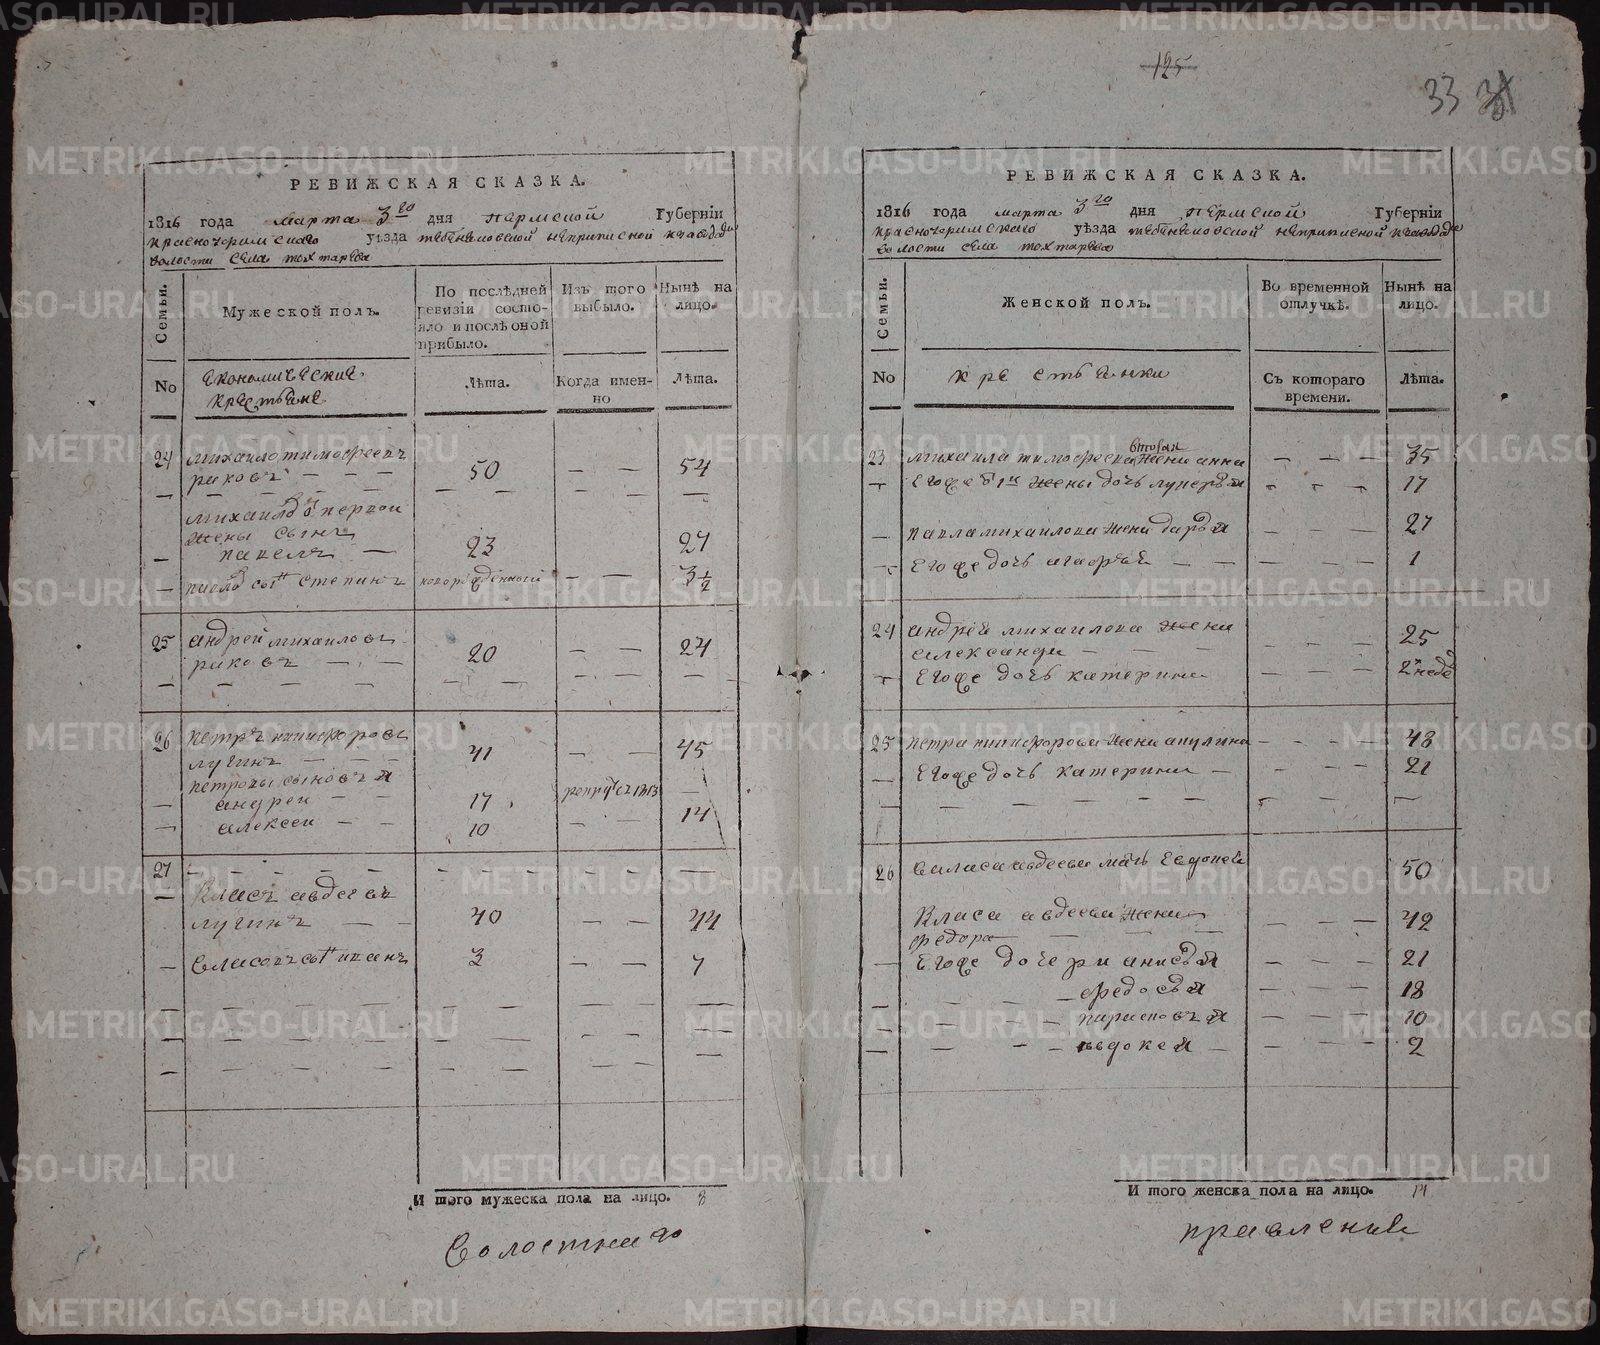 125
33
РЕВИЖСКАЯ СКАЗКА.
1816 года марта 3го дня пермской Губернїи
красноуфимскаго уѣзда
волости села тохтарева
Семьи.
Мужеской полъ.
По послѣдней ревизїи состояло и послѣ оной прибыло.
Изъ того выбыло.
Нынѣ на лицо.
No
економические крестьяне
Лѣта.
Когда именно
Лѣта.
24 михаило тимофеевъ
раковъ — — 50 — — 54
михаила о первой
жены сынъ
павелъ — 23 27
павловъ сынъ степанъ новорожденный — — 3½
25 андрей михаиловъ
раковъ — — 20 — — 24
26 петръ никифоровъ
лугинъ — — 41 — — 45
петровы сыновья
андреи — — 17 рекрутъ 1813 —
алексеи — — 10 — — 14
27
власъ авдеевъ
лугинъ — — 40 — — 44
власовъ сынъ иванъ 3 — — 7
И того мужеска пола на лицо. 8
волостнаго
РЕВИЖСКАЯ СКАЗКА.
1816 года марта 3го дня пермской Губернїи
красноуфимскаго уѣзда
волости села тохтарева
Семьи.
Женской полъ.
Во временной отлучкѣ.
Нынѣ на лицо.
No
крестьянки
Съ котораго времени.
Лѣта.
вторая
23 михаила тимофеева жена анна — — — 35
Егоже о 1й жены дочь лукерья — — — 17
павла михаилова жена дарья — — — 27
Егоже дочь агафья — — — 1
24 андрея михаилова жена
александра — — — 25
Егоже дочь катерина — — — 2 неде
25 петра никифорова жена акулина — — — 43
Егоже дочь катерина — — — 21
26 власа авдеева мать Евдокея 50
власа авдеева жена
федора — — — 42
Егоже дочери анисья — — — 21
федосья — — — 18
парасковья — — — 10
авдокея — — — 2
И того женска пола на лицо. 14
правления
METRIKI.GASO-URAL.RU